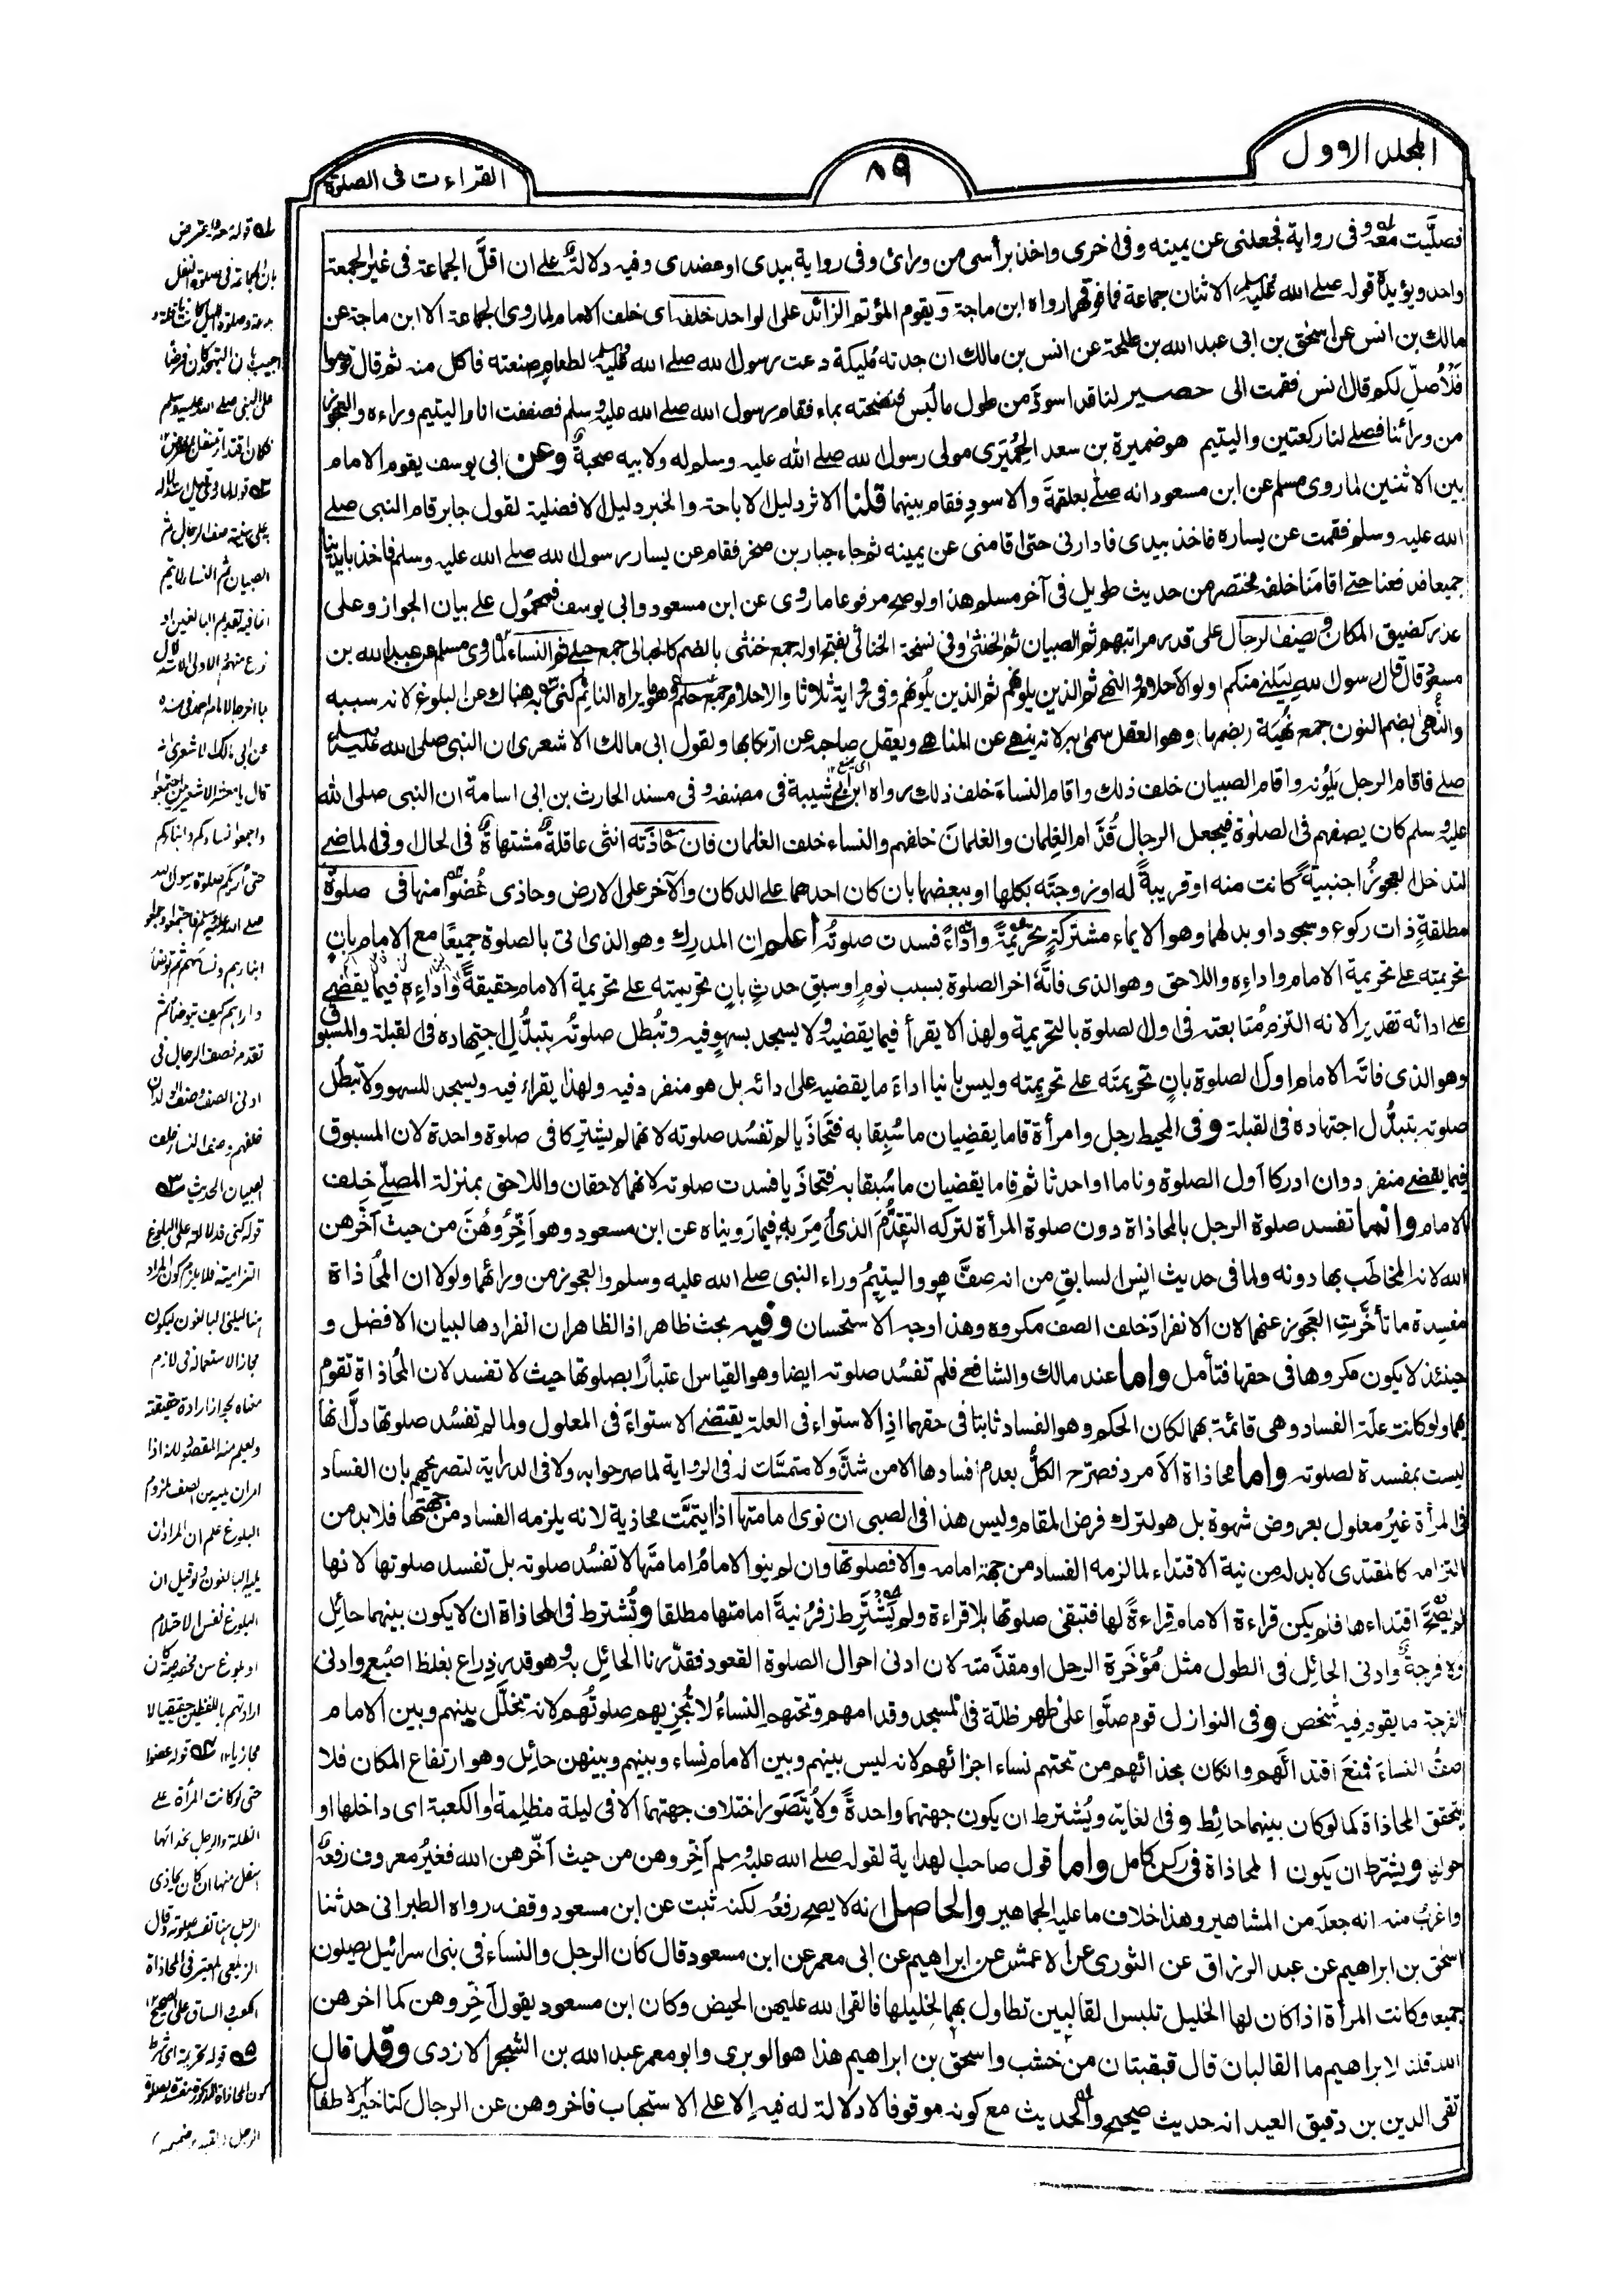 المجلد الاول
٨٩
القراءت فى الصلوة
فصلَّيت معه وفى رواية فجعلنى عن يمينه وفى اخرى واخذ برأسى من ورائ وفى رواية بيدى او عضدى وفيه دلالة على ان اقلَّ الجماعة فى غير الجمعة
واحد ويؤيده قوله صلے الله عليه وسلم الاثنان جماعة فما فوقهما رواه ابن ماجة ويقوم المؤتم الزائد على الواحد خلفه اى خلف الامام لما روى الجماعة الا ابن ماجة عن
مالك بن انس عن اسحٰق بن ابى عبد الله بن طلحة عن انس بن مالك ان جدته مُليكة دعت رسول الله صلے الله عليه وسلم لطعام صنعته فاكل منه ثم قال قوموا
فَلِاُصلِّ لكم قال انس فقمت الى حصير لنا قد اسودَّ من طول ما لُبس فنضحته بماء فقام رسول الله صلے الله عليه وسلم فصففت انا واليتيم وراءه والعجوز
من ورائنا فصلے لنا ركعتين واليتيم هو ضميرة بن سعد الحِمْيَرى مولى رسول الله صلے الله عليه وسلم له ولابيه صحبةٌ وعن ابى يوسف يقوم الامام
بين الاثنين لما روى مسلم عن ابن مسعود انه صلّٰى بعلقمة والاسود فقام بينهما قلنا الاثر دليل الاباحة والخبر دليل الافضلية لقول جابر قام النبى صلے
الله عليه وسلم فقمت عن يساره فاخذ بيدى فادارنى حتى اقامنى عن يمينه ثم جاء جبار بن صخر فقام عن يسار رسول الله صلے الله عليه وسلم فاخذ بايدينا
جميعا فدفعنا حتے اقامَنا خلفه مختصر من حديث طويل فى آخر مسلم هذا ولو صح مرفوعا ما روى عن ابن مسعود وابى يوسف فمحمُول علے بيان الجواز وعلى
عذر كضيق المكان ويصف الرجال على قدر مراتبهم ثم الصبيان ثم الخنثى وفى نسخة الخناثى بفتح اوله جمع خنثى بالضم كالحبالى جمع حبلے ثم النساء لما روى مسلم عن عبد الله بن
مسعود قال قال رسول الله لِيَلنے منكم اولو الاحلام والنهے ثم الذين يلونهم ثم الذين يلُونهم وفى رواية ثلاثا والاحلام جمع حلم وهو ما يراه النائم كنى به هناك عن البلوغ لانه سببه
والنُّهى بضم النون جمع نُهيَة (بضمها) وهو العقل سمى به لانه ينهے عن المناهے ويعقل صاحبه عن ارتكابها ولقول ابى مالك الاشعرى ان النبى صلى الله عليه وسلم
صلے فاقام الرجل يَلُونه واقام الصبيان خلف ذلك واقام النساءَ خلف ذلك رواه ابن ابى شيبة فى مصنفه وفى مسند الحارث بن ابى اسامة ان النبى صلى الله
عليه وسلم كان يصفهم فى الصلوة فيجعل الرجال قُدَّام الغِلمان والغلمانَ خلفهم والنساء خلف الغلمان فان حَاذَتْه انثى عاقلةٌ مشتهاةٌ فى الحال او فى الماضے
لتدخل العجوزُ اجنبيةً كانت منه او قريبةً له او زوجته بكلها او ببعضها بان كان احدهما على الدكان والآخر على الارض وحاذى عُضْوًا منها فى صلوة
مطلقةٍ ذات ركوع وسجود او بدلهما وهو الايماء مشتركةٍ تحريمةً واداءً فسدت صلوتُه اعلم ان المدرك وهو الذى اتى بالصلوة جميعًا مع الامام بانٍ
تحريمته على تحريمة الامام واداءِه واللاحق وهو الذى فاتَهُ اخر الصلوة بسبب نوم او سبقِ حدثٍ بانٍ تحريمته على تحريمة الامام حقيقةً واداءِه فيما يقضے
على ادائه تقديرا لانه التزم مُتابعته فى اول الصلوة بالتحريمة ولهذا لا يقرأ فيما يقضيه ولا يسجد بسهوٍ فيه وتُبطل صلوتُه بتبدُّلِ اجتهاده فى القبلة والمسبوق
وهو الذى فاته الامام اولَ الصلوة بانٍ تحريمتَه على تحريمته وليس بانيا اداءَ ما يقضيه على ادائه بل هو منفرد فيه ولهذا يقراء فيه ويسجد للسهو ولا تبطُل
صلوته بتبدُّل اجتهاده فى القبلة وفى المحيط رجل وامرأة قاما يقضيان ما سُبِقا به فتحاذَيا لم تفسُد صلوته لانهما لم يشتركا فى صلوة واحدة لان المسبوق
فيما يقضے منفرد وان ادركا اول الصلوة وناما او احدثا ثم قاما يقضيان ما سُبقا به فتحاذَيا فسدت صلوته لانهما لاحقان واللاحق بمنزلة المصلّے خلف
الامام وانما تفسد صلوة الرجل بالمحاذاة دون صلوة المرأة لتركه التقدُّمَ الذى اُمِرَ به فيما رويناه عن ابن مسعود وهو اَخِّرُوهُنَّ من حيث اَخَّرهن
الله لانه المخاطَب بها دونه ولما فى حديث انس السابق من انه صفَّ هو واليتيمُ وراء النبى صلے الله عليه وسلم والعجوز من ورائهما ولولا ان المُحاذاة
مفسِدة ما تأخَّرتِ العجوز عنهما لان الانفرادَ خلف الصف مكروه وهذا وجه الاستحسان وفيه بحث ظاهر اذ الظاهر ان انفرادها لبيان الافضل و
حينئذ لا يكون مكروها فى حقها فتأمل واما عند مالك والشافعے فلم تفسُد صلوته ايضا وهو القياس اعتبارًا بصلوتها حيث لا تفسد لان المُحاذاة تقوم
بهما ولو كانت علّة الفساد وهى قائمة بهما لكان الحكم وهو الفساد ثابتا فى حقهما اذِ الاستواء فى العلة يقتضے الاستواءَ فى المعلول ولما لم تفسُد صلوتها دلَّ انها
ليست بمفسدة لصلوته واما محاذاة الاَمرد فصرّح الكلُّ بعدم افسادها الا من شذَّ ولا متمسَّك له فى الرواية لما صرحوا به ولا فى الدراية لتصريحهم بان الفساد
فى المرأة غيرُ معلول بعروض شهوة بل هو لترك فرض المقام وليس هذا فى الصبى ان نوى امامتها اذا ايتمَّت محاذية لانه يلزمه الفساد من جهتها فلا بد من
التزامه كالمقتدى لا بد له من نية الاقتداء لما لزمه الفساد من جهة امامه والا فصلوتها وان لم ينو الامامُ امامتَها لا تفسُد صلوته بل تفسد صلوتها لانها
لم يصحَّ اقتداءها فلم يكن قراءة الامام قِراءةً لها فتبقى صلوتها بلا قراءة ولم يَشْتَرِط زفرُ نيةَ امامتها مطلقا وتُشترط فى المحاذاة ان لا يكون بينهما حائِل
ولا فرجةٌ وادنى الحائِل فى الطول مثل مُؤَخّرة الرحل او مقدَّمته لان ادنى احوال الصلوة القعود فقدّرنا الحائِل به وهو قدر ذِراع بغلظ اصبُع وادنى
الفرجة ما يقوم فيه شخص وفى النوازل قوم صلَّوا على ظهر ظلة فى المسجد وقدامهم وتحتهم النساءُ لا تُجزيهم صلوتُهم لانه تخلَّل بينهم وبين الامام
صفُّ النساءَ فمنعَ اقتداءَهم وان كان بحذائهم من تحتهم نساء اجزائهم لانه ليس بينهم وبين الامام نساء وبينهم وبينهن حائِل وهو ارتفاع المكان فلا
يتحقق المحاذاة كما لو كان بينهما حائِط وفى الغاية ويُشترط ان يكون جهتهما واحدةً ولا يُتَصَور اختلاف جهتهما الا فى ليلة مظلِمة او الكعبة اى داخلها او
حولها ويشترط ان يكون المحاذاة فى ركن كامل واما قول صاحب الهداية لقوله صلے الله عليه وسلم اَخِّروهن من حيث اَخّرهن الله فغيرُ معروف رفعُهُ
واغربُ منه انه جعلَه من المشاهير وهذا خلاف ما عليه الجماهير والحاصل انه لا يصح رفعُه لكنه ثبت عن ابن مسعود وقفه رواه الطبرانى حدثنا
اسحٰق بن ابراهيم عن عبد الرزاق عن الثورى عن الاعمش عن ابراهيم عن ابى معمر عن ابن مسعود قال كان الرجل والنساء فى بنى اسرائيل يصلون
جميعا وكانت المرأة اذا كان لها الخليل تلبس القالبين تطاول بهما لخليلها فالقى الله عليهن الحيض وكان ابن مسعود يقول اَخِّروهن كما اخرهن
الله قلنا لابراهيم ما القالبان قال قبقبتان من خشب واسحق بن ابراهيم هذا هو الدبرى وابو معمر عبد الله بن الشجر الازدى وقد قال
تقى الدين بن دقيق العيد انه حديث صحيح والحديث مع كونه موقوفا لا دلالة له فيه اِلا على الاستحباب فاخروهن عن الرجال كتاخير الاطفال
بان الجماعة فى صلوة النفل
على النبى صلے الله عليه وسلم
على سنية صف الرجال ثم
الصبيان ثم النساء
عن ابى مالك الاشعرى انه
قال يا معشر الاشعريين اجتمعوا
واجمعوا نساءكم وابناءكم
حتى اُريكم صلوة رسول الله
تقدم فصف الرجال فى
ادنى الصف وصف الولدان
خلفهم وصف النساء خلف
الصبيان الحديث
البلوغ علم ان المراد ان
يليه البالغون ولو قيل ان
البلوغ نفس الاحتلام
حتى لو كانت المرأة على
الظلة والرجل بحذائها
اسفل منها ان كان يحاذى
الزيلعى المعتبر فى المحاذاة
الكعب والساق على الصحيح